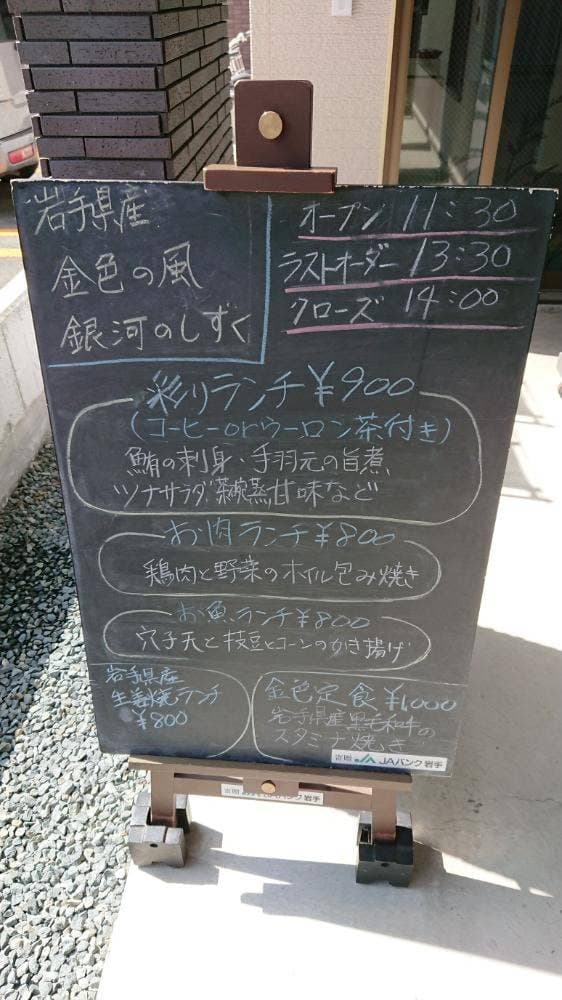 岩手県産
金色の風
銀河のしずく
オープン 11:30
ラストオーダー 13:30
クローズ 14:00
彩りランチ¥900
(コーヒーorウーロン茶付き)
鮪の刺身、手羽元の旨煮、
ツナサラダ、茶碗蒸、甘味など
お肉ランチ¥800
鶏肉と野菜のホイル包み焼き
お魚ランチ¥800
穴子天と枝豆とコーンのかき揚げ
岩手県産
生姜焼ランチ
¥800
金色定食¥1000
岩手県産黒毛和牛の
スタミナ焼き
寄贈 JAバンク岩手
寄贈 JAバンク岩手